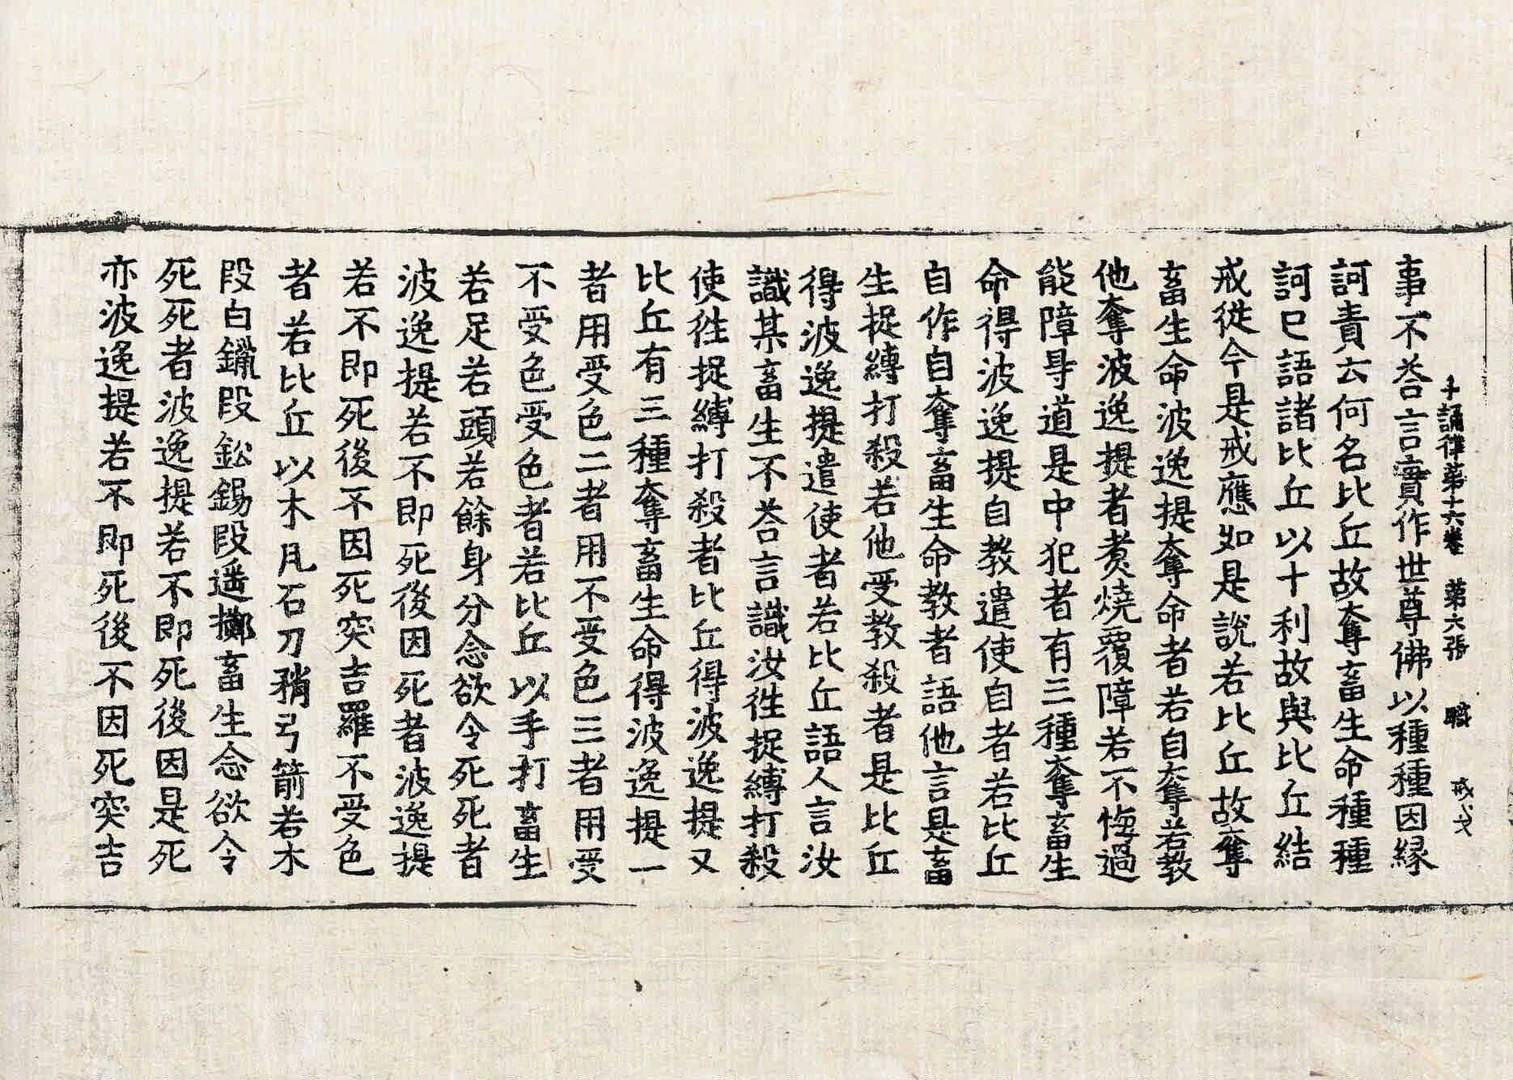 十誦律第十六卷 第六張 職
事不荅言實作世尊佛以種種因緣
訶責云何名比丘故奪畜生命種種
訶巳語諸比丘以十利故與比丘結
戒從今是戒應如是說若比丘故奪
畜生命波逸提奪命者若自奪若教
他奪波逸提者煑燒覆障若不悔過
能障㝵道是中犯者有三種奪畜生
命得波逸提自教遣使自者若比丘
自作自奪畜生命教者語他言是畜
生捉縛打殺若他受教殺者是比丘
得波逸提遣使者若比丘語人言汝
識某畜生不荅言識汝徃捉縛打殺
使徃捉縛打殺者比丘得波逸提又
比丘有三種奪畜生命得波逸提一
者用受色二者用不受色三者用受
不受色受色者若比丘以手打畜生
若足若頭若餘身分念欲令死死者
波逸提若不即死後因死者波逸提
若不即死後不因死突吉羅不受色
者若比丘以木瓦石刀矟弓箭若木
段白鑞段鈆錫段遥擲畜生念欲令
死死者波逸提若不即死後因是死
亦波逸提若不即死後不因死突吉